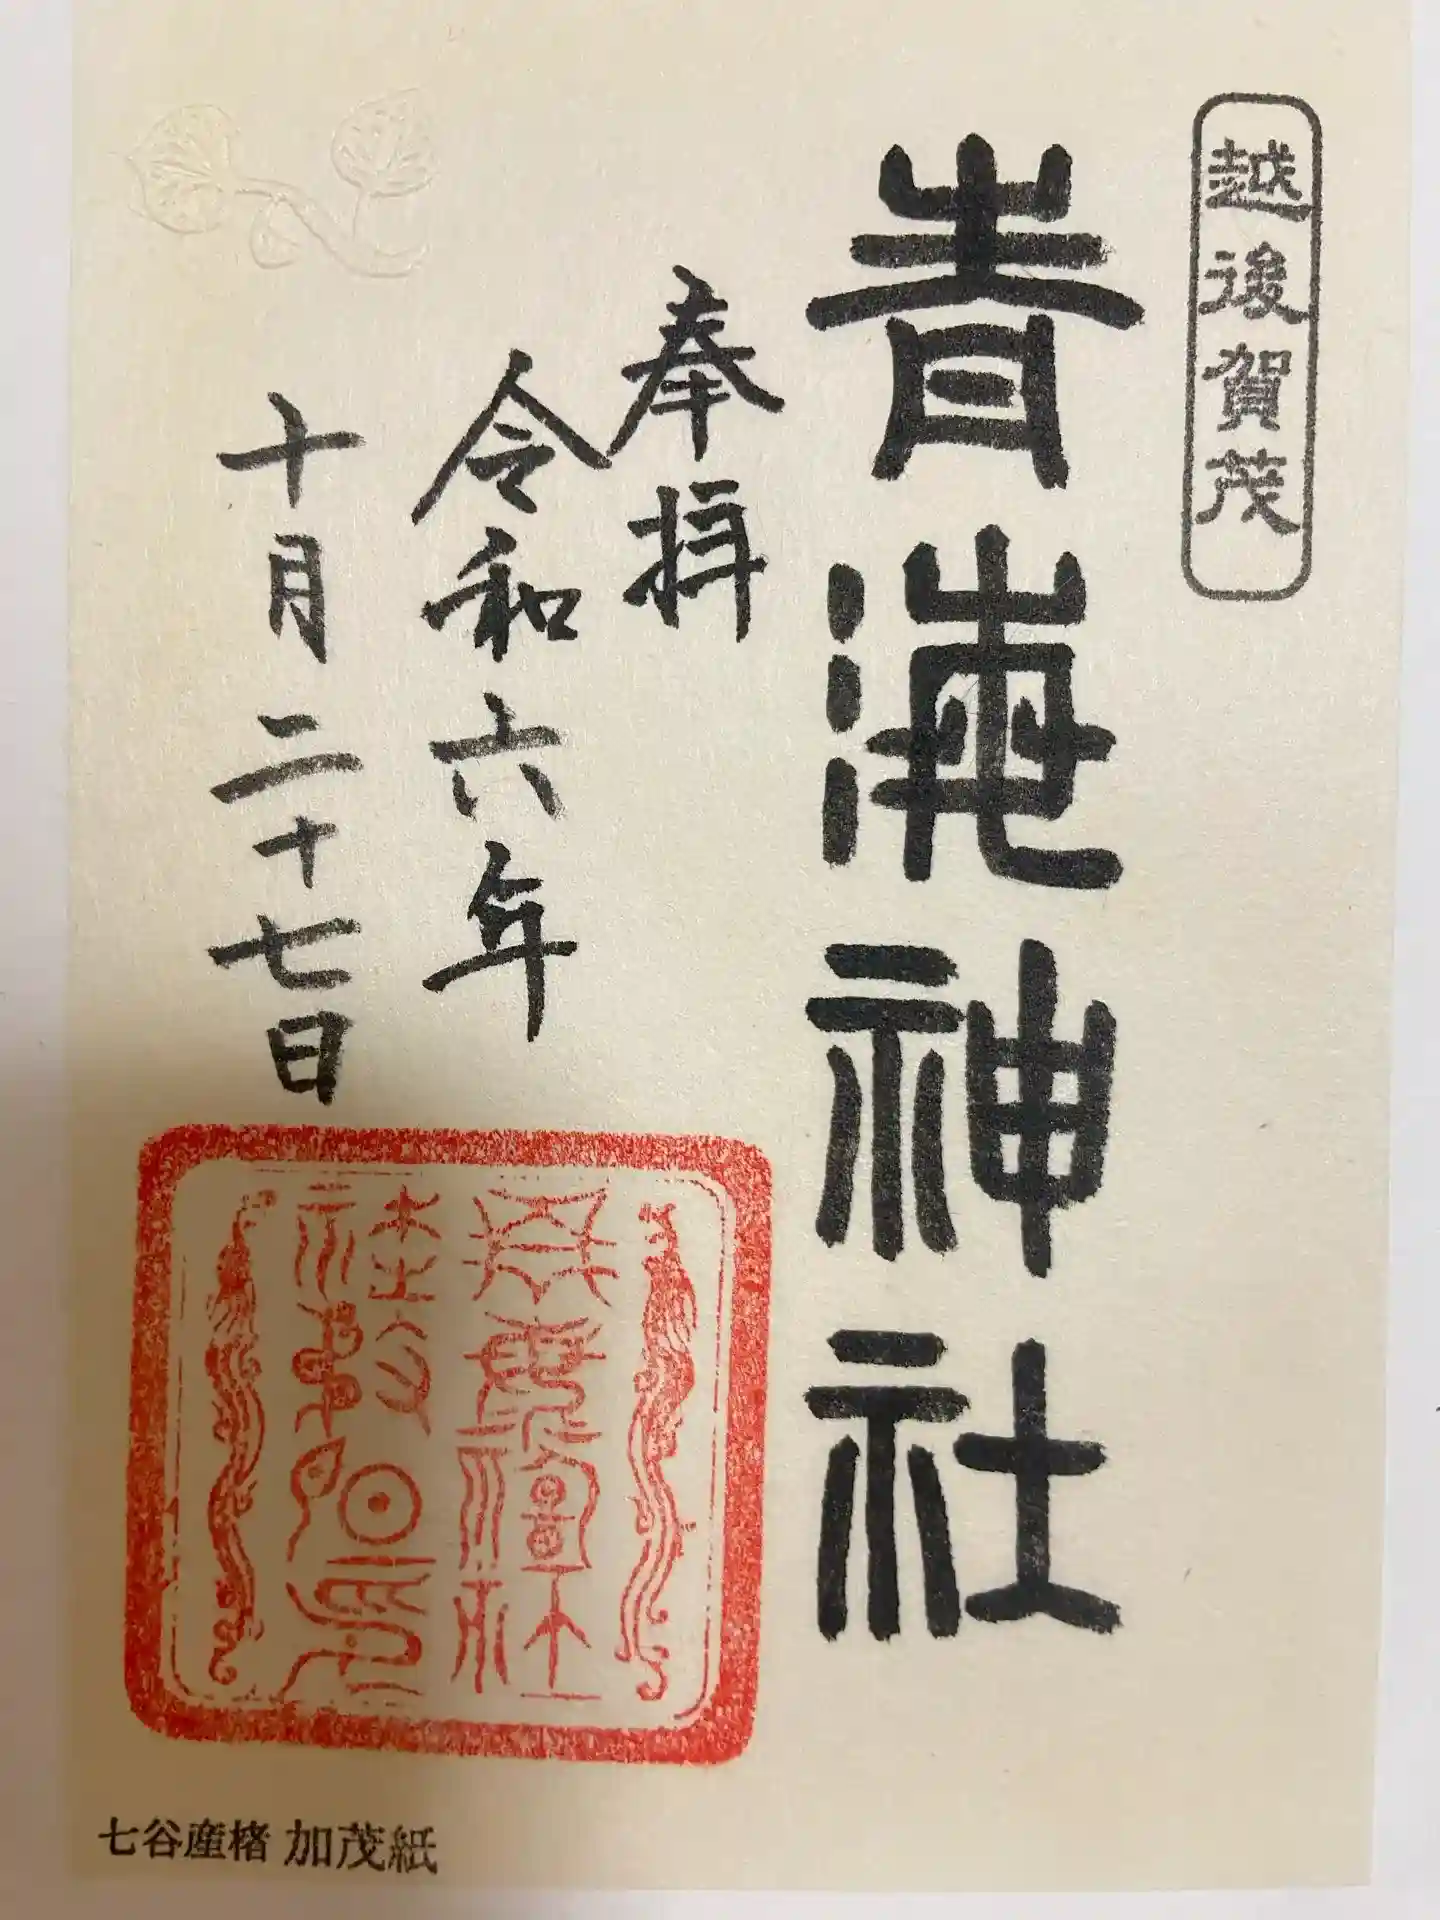 越後賀茂
青海神社
奉拝
令和六年
十月二十七日
七谷産楮 加茂紙